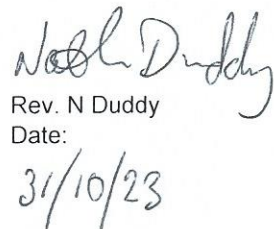 Duddy
Rev. N Duddy
Date:
31/10/23